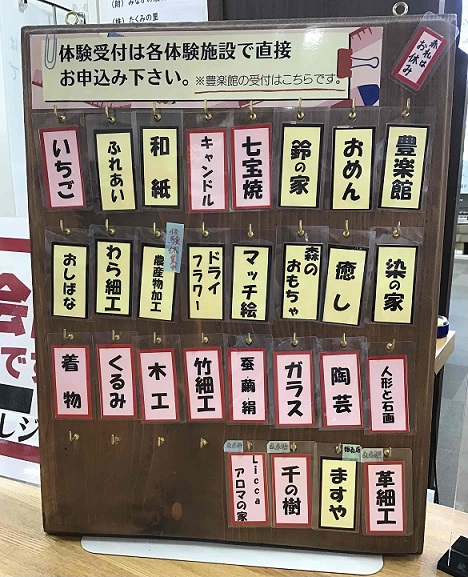 体験受付は各体験施設で直接
お申込み下さい。※豊楽館の受付はこちらです。
赤札は
お休み
豊楽館
おめん
鈴の家
七宝焼
キャンドル
和紙
ふれあい
いちご
染の家
癒し
森の
おもちゃ
マッチ絵
ドライ
フラワー
農産物加工
体験休業中
わら細工
おしばな
人形と石画
陶芸
ガラス
蚕・繭・絹
竹細工
木工
くるみ
着物
革細工
ますや
千の樹
Licca
アロマの家
会
です
レジ